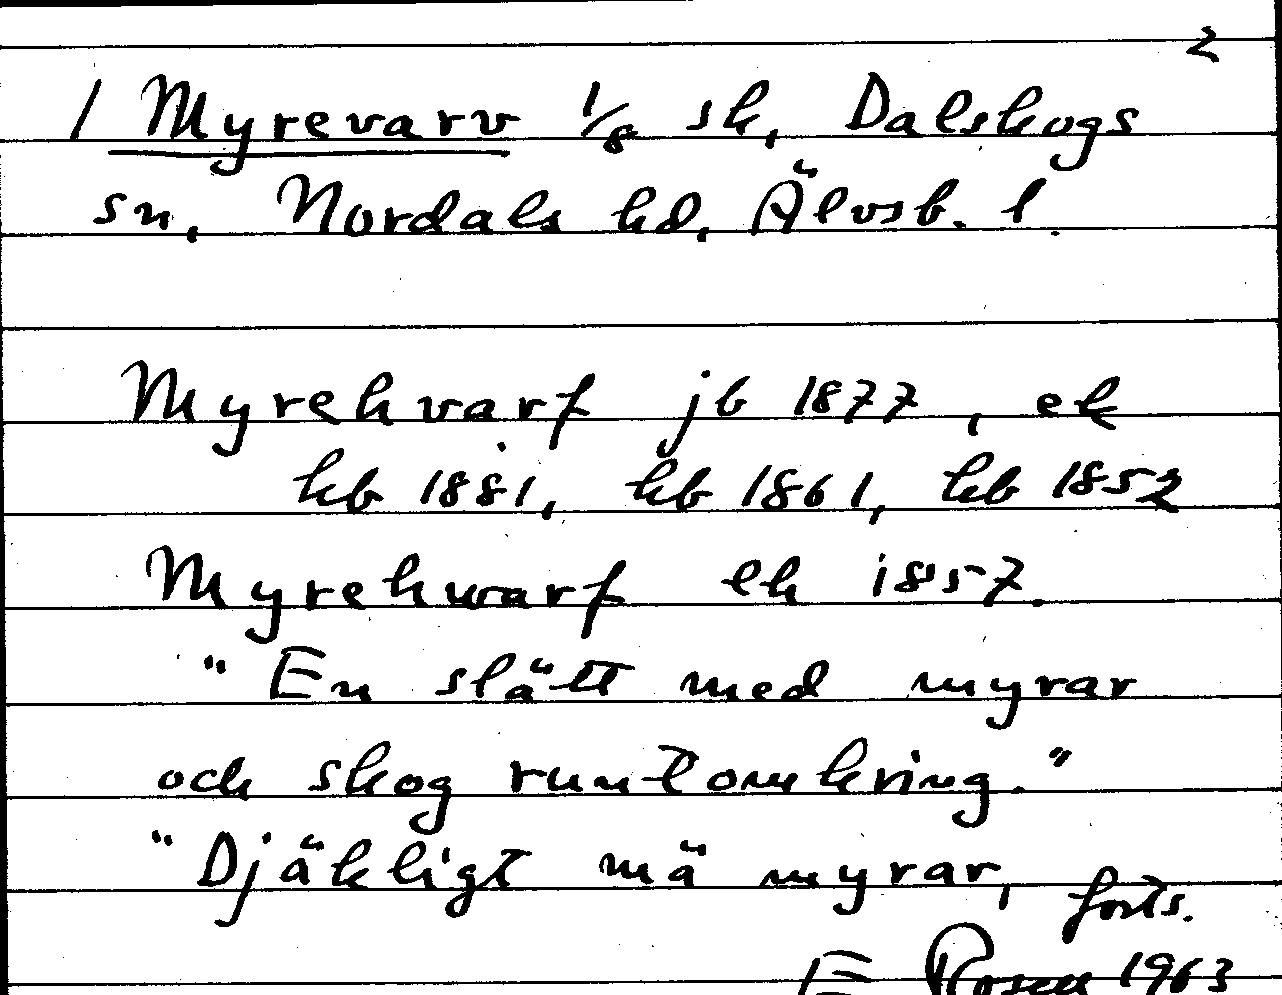 2
1 Myrevarv 1/8 sk, Dalskogs
sn, Nordals hd, Älvsb. l.
Myrehvarf jb 1877, ek
hb 1881, hb 1861, hb 1852
Myrehwarf ek 1857.
"En slätt med myrar
och skog runtomkring."
"Djäkligt mä myrar, forts.
E Rosen 1963